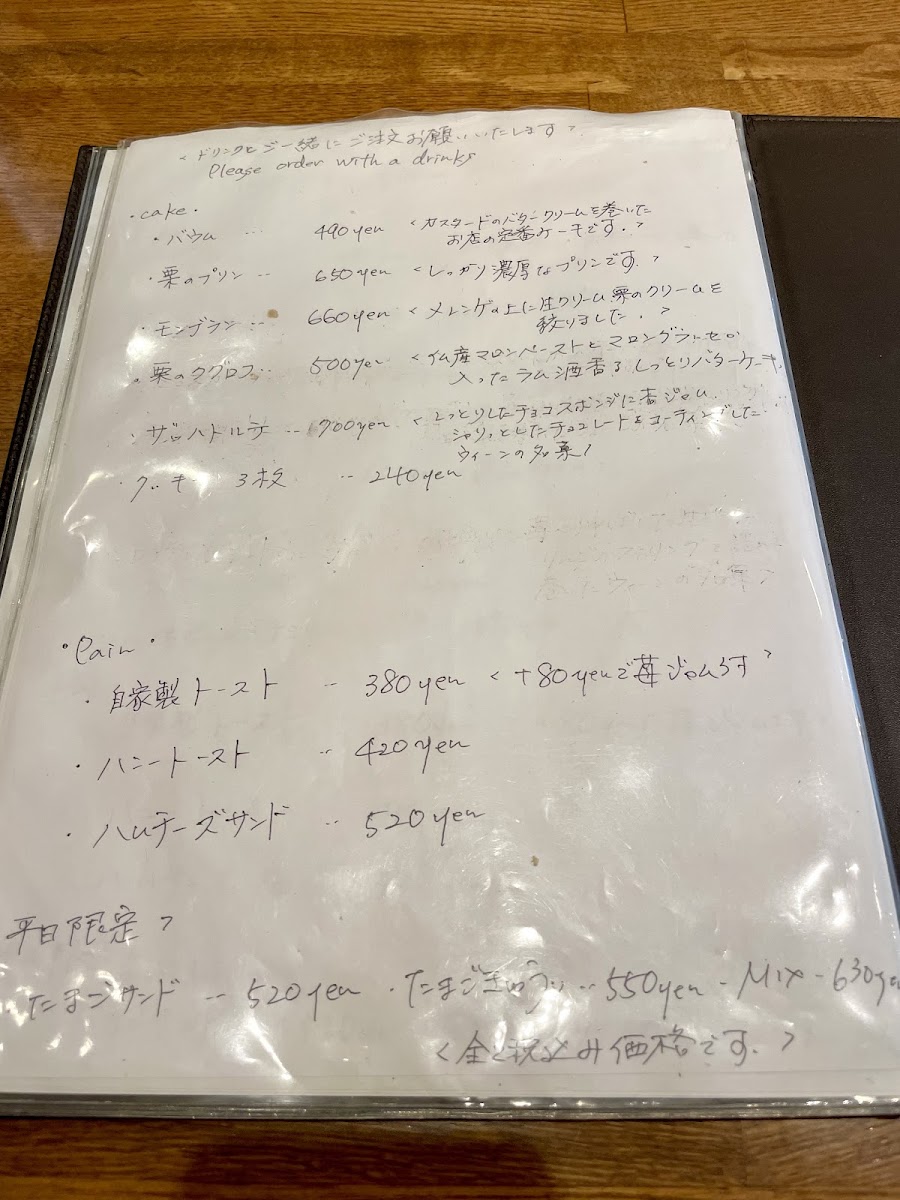 <ドリンクとご一緒にご注文お願いいたします>
Please order with a drinks
・cake・
・バウム … 490yen <カスタードのバタークリームを巻いた
お店の定番ケーキです。>
・栗のプリン … 650yen <しっかり濃厚なプリンです。>
・モンブラン … 660yen <メレンゲの上に生クリーム栗のクリームを
絞りました。>
・栗のクグロフ … 500yen <イム産マロンペーストとマロングラッセが
入ったラム酒香る しっとりバターケーキ
・ザッハトルテ … 700yen <しっとりしたチョコスポンジに杏ジャム
シャリッとしたチョコレートをコーティングした
ウィーンの名菓>
クッキー 3枚 … 240yen
・Pain・
・自家製トースト … 380yen <+80yenで苺ジャム
・ハニートースト … 420yen
・ハムチーズサンド … 520yen
平日限定>
・たまごサンド … 520yen ・たまごきゅうり … 550yen - Mix - 630ye
<全て税込み価格です。>